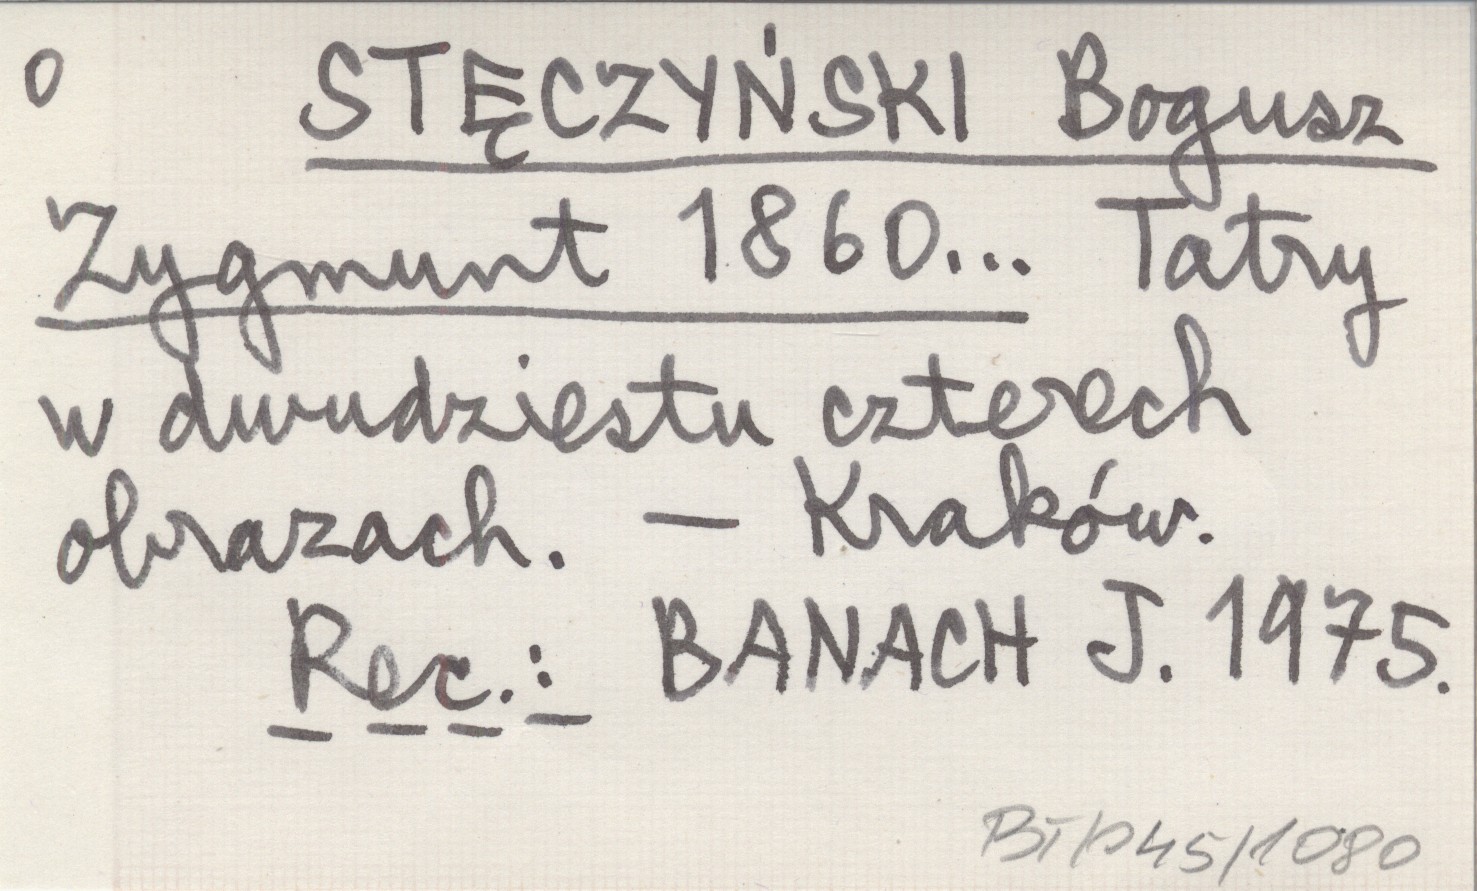 o STĘCZYŃSKI Bogusz
Zygmunt 1860... Tatry
w dwudziestu czterech
obrazach. — Kraków.
Rec.: BANACH J. 1975.
BT/P45/1080